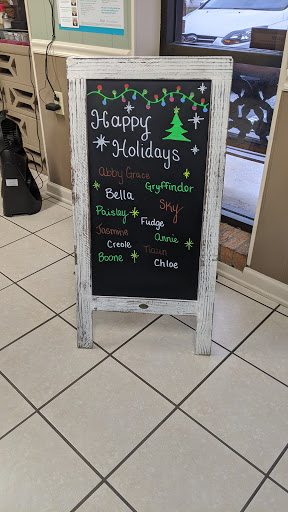 Happy
Holidays
Abby Grace
Gryffindor
Bella
Sky
Paisley
Fudge
Jasmine
Annie
Creole
Boone
Chloe